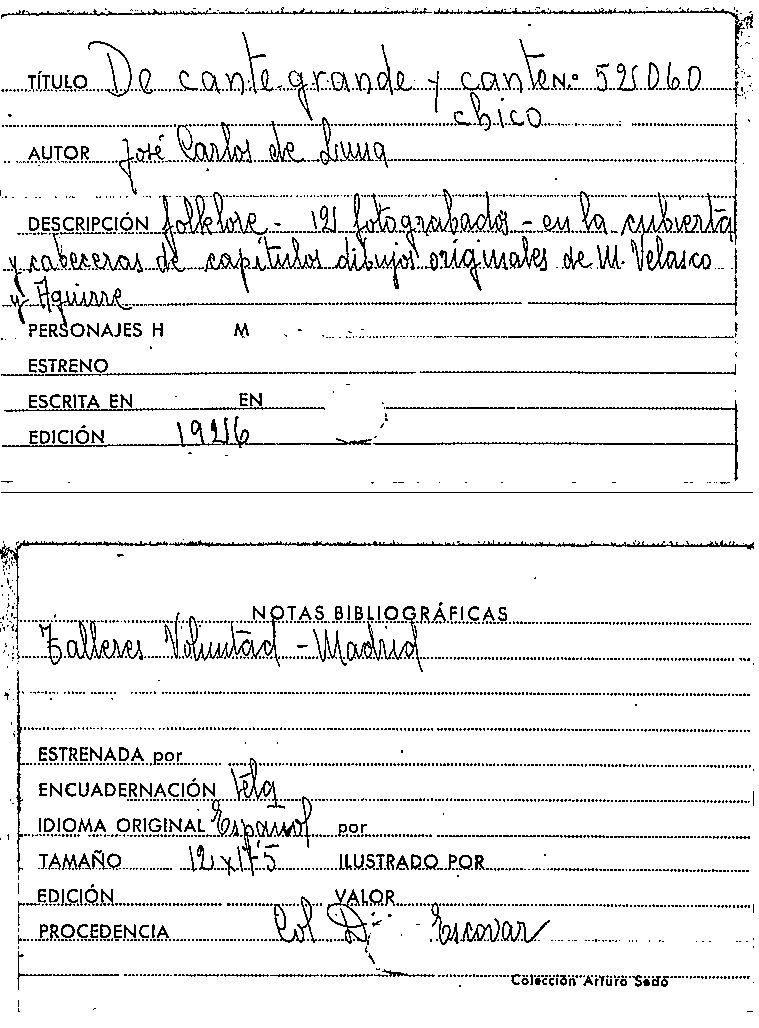 TÍTULO De cante grande y cante N.º 52060
chico
AUTOR José Carlos de Luna
DESCRIPCIÓN folklore - 12 fotograbados - en la cubierta
y cabeceras de capítulos dibujos originales de M. Velasco
y Aguirre
PERSONAJES H M
ESTRENO
ESCRITA EN EN
EDICIÓN 1926
NOTAS BIBLIOGRÁFICAS
Talleres Voluntad - Madrid
ESTRENADA por
ENCUADERNACIÓN tela
IDIOMA ORIGINAL Español por
TAMAÑO 12 x 17'5 ILUSTRADO POR
EDICIÓN VALOR
PROCEDENCIA Col Díaz Escovar
Colección Arturo Sedó